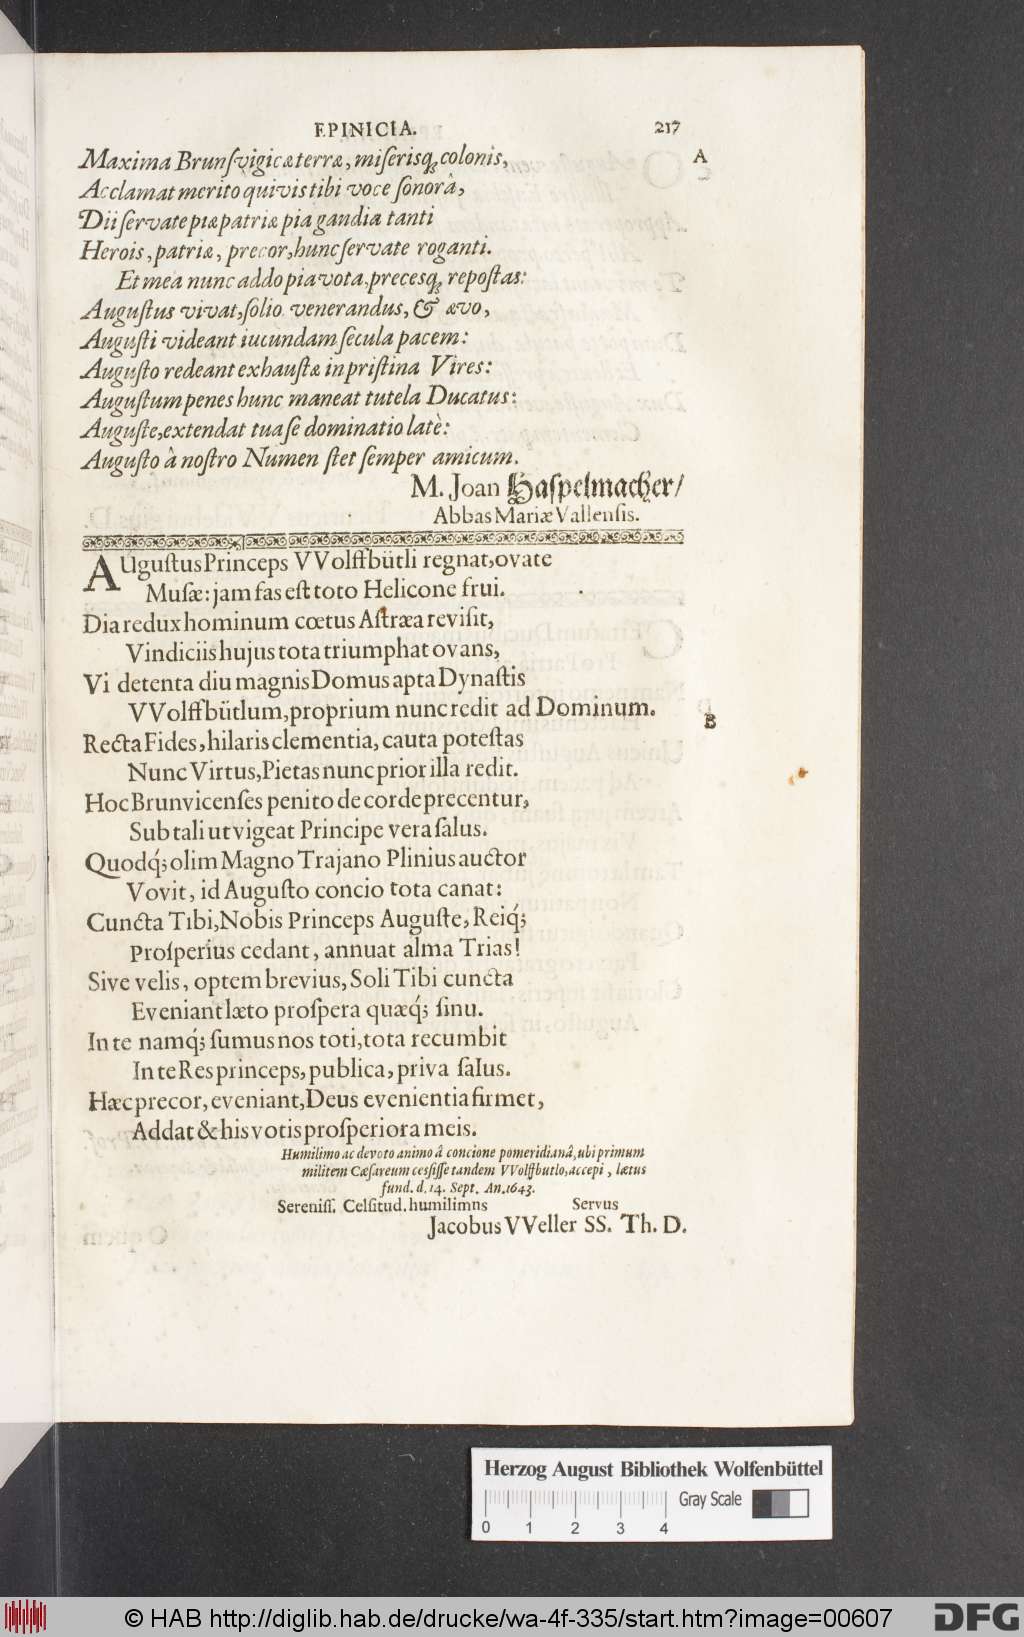 EPINICIA. 217
Maxima Brunſvigicæ terræ, miſerisq; colonis, A
Acclamat merito quivis tibi voce ſonorâ,
Dii ſervate piæ patriæ pia gaudia tanti
Herois, patriæ, precor, hunc ſervate roganti.
Et mea nunc addo pia vota, precesq; repoſtas:
Auguſtus vivat, ſolio venerandus, & ævo,
Auguſti videant iucundam ſecula pacem:
Auguſto redeant exhauſtæ in priſtina Vires:
Auguſtum penes hunc maneat tutela Ducatus:
Auguſte, extendat tua ſe dominatio latè:
Auguſto â noſtro Numen ſtet ſemper amicum.
M. Joan Haſpelmacher/
Abbas Mariæ Vallenſis.
AUguſtus Princeps VVolffbütli regnat, ovate
Muſæ: jam fas eſt toto Helicone frui.
Dia redux hominum cœtus Aſtræa reviſit,
Vindiciis hujus tota triumphat ovans,
Vi detenta diu magnis Domus apta Dynaſtis
VVolffbütlum, proprium nunc redit ad Dominum.
B
Recta Fides, hilaris clementia, cauta poteſtas
Nunc Virtus, Pietas nunc prior illa redit.
Hoc Brunvicenſes penito de corde precentur,
Sub tali ut vigeat Principe vera ſalus.
Quodq́; olim Magno Trajano Plinius auctor
Vovit, id Auguſto concio tota canat:
Cuncta Tibi, Nobis Princeps Auguſte, Reiq́;
Proſperius cedant, annuat alma Trias!
Sive velis, optem brevius, Soli Tibi cuncta
Eveniant læto proſpera quæq́; ſinu.
In te namq́; ſumus nos toti, tota recumbit
In te Res princeps, publica, priva ſalus.
Hæc precor, eveniant, Deus evenientia firmet,
Addat & his votis proſperiora meis.
Humilimo ac devoto animo â concione pomeridianâ, ubi primum
militem Cæſareum ceſſiſſe tandem VVolffbutlo, accepi, lætus
fund. d. 14. Sept. An. 1643.
Sereniſſ. Celſitud. humilimns Servus
Jacobus VVeller SS. Th. D.
Herzog August Bibliothek Wolfenbüttel
Gray Scale
0 1 2 3 4
© HAB http://diglib.hab.de/drucke/wa-4f-335/start.htm?image=00607 DFG